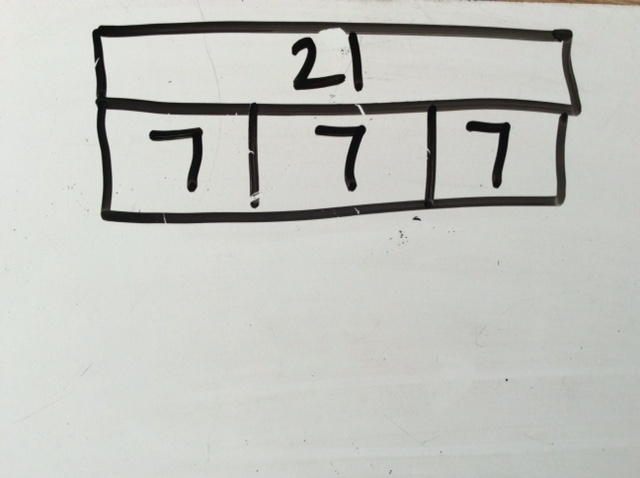 21
7 7 7